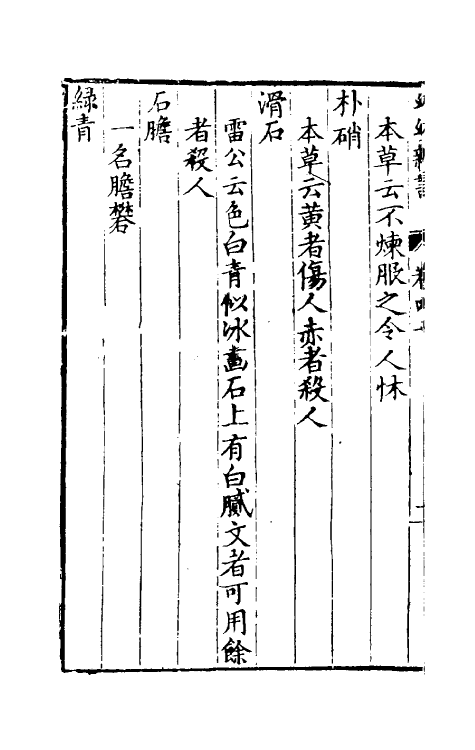 幼幼新書 卷四十
本草云不煉服之令人怵
朴硝
本草云黄者傷人赤者殺人
滑石
雷公云色白青似冰畫石上有白膩文者可用餘
者殺人
石膽
一名膽礬
緑青